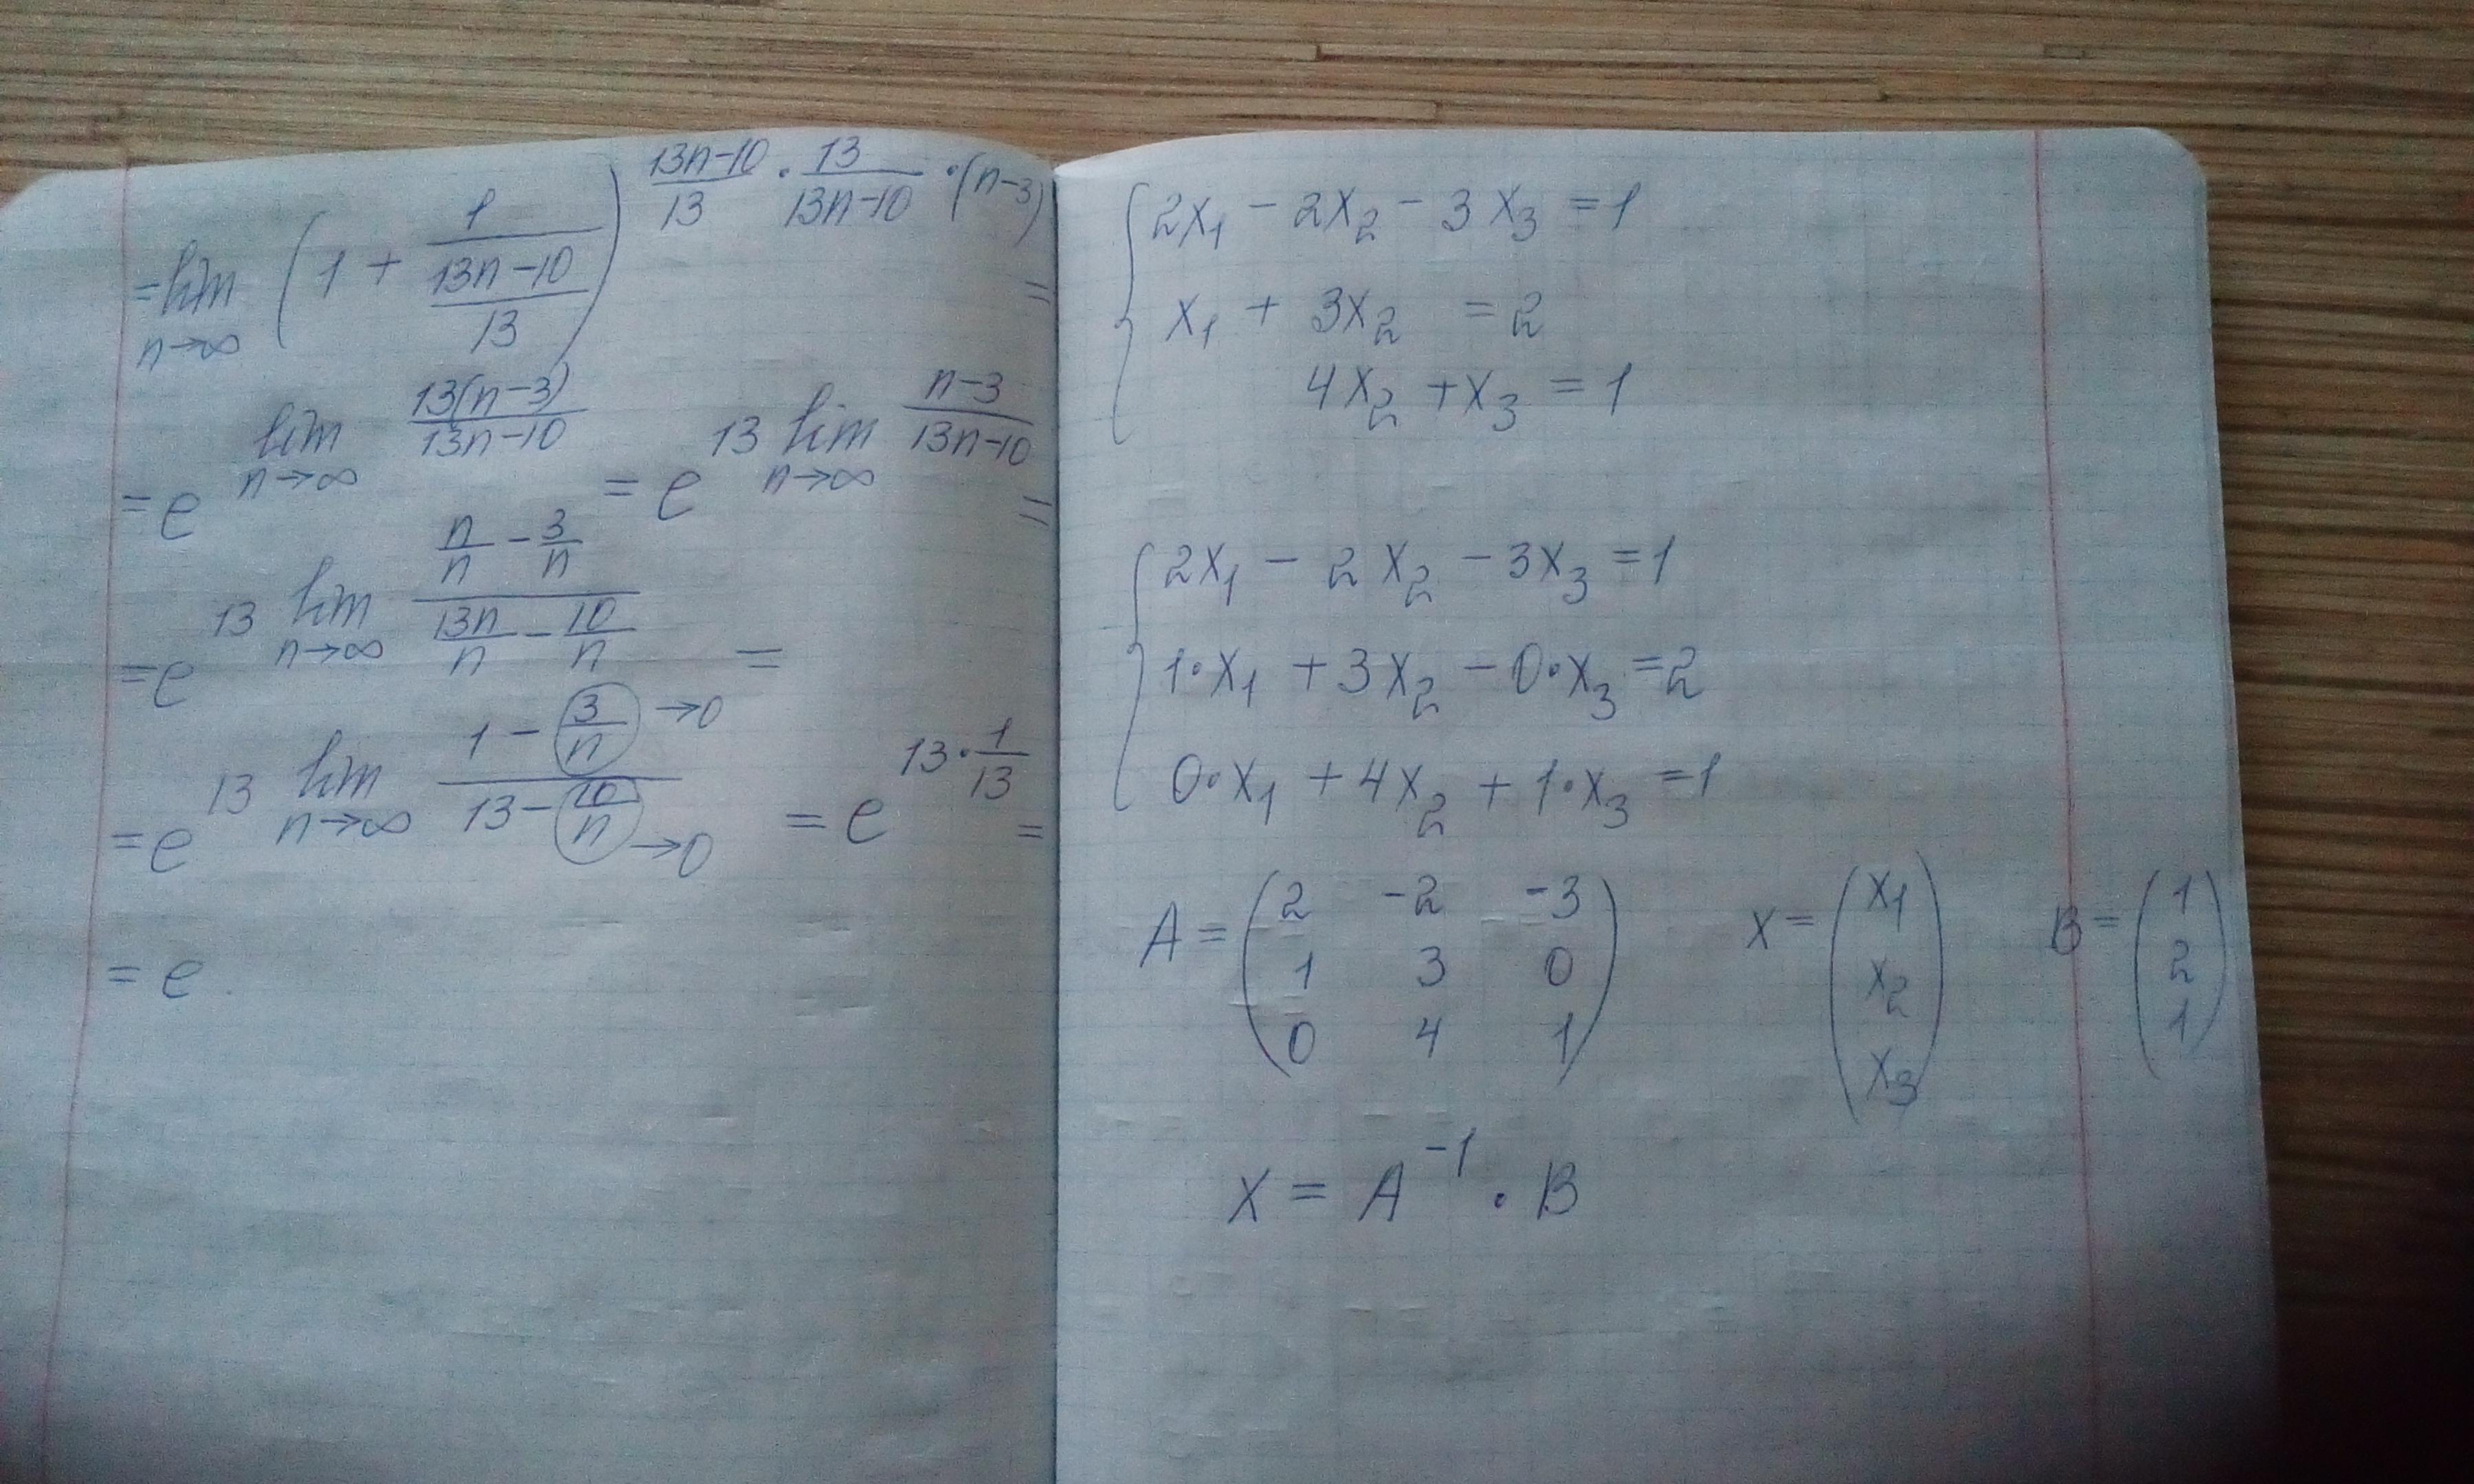 = lim n→∞ (1 + 1/((13n-10)/13))^((13n-10)/13 · 13/(13n-10) · (n-3)) =
= e^(lim n→∞ 13(n-3)/(13n-10)) = e^(13 lim n→∞ (n-3)/(13n-10)) =
= e^(13 lim n→∞ (n/n - 3/n)/(13n/n - 10/n)) =
= e^(13 lim n→∞ (1 - 3/n →0)/(13 - 10/n →0)) = e^(13 · 1/13) =
= e.
{ 2x₁ - 2x₂ - 3x₃ = 1
x₁ + 3x₂ = 2
4x₂ + x₃ = 1
{ 2x₁ - 2x₂ - 3x₃ = 1
1·x₁ + 3x₂ - 0·x₃ = 2
0·x₁ + 4x₂ + 1·x₃ = 1
A = (2 -2 -3 / 1 3 0 / 0 4 1) X = (x₁ / x₂ / x₃) B = (1 / 2 / 1)
X = A⁻¹ · B